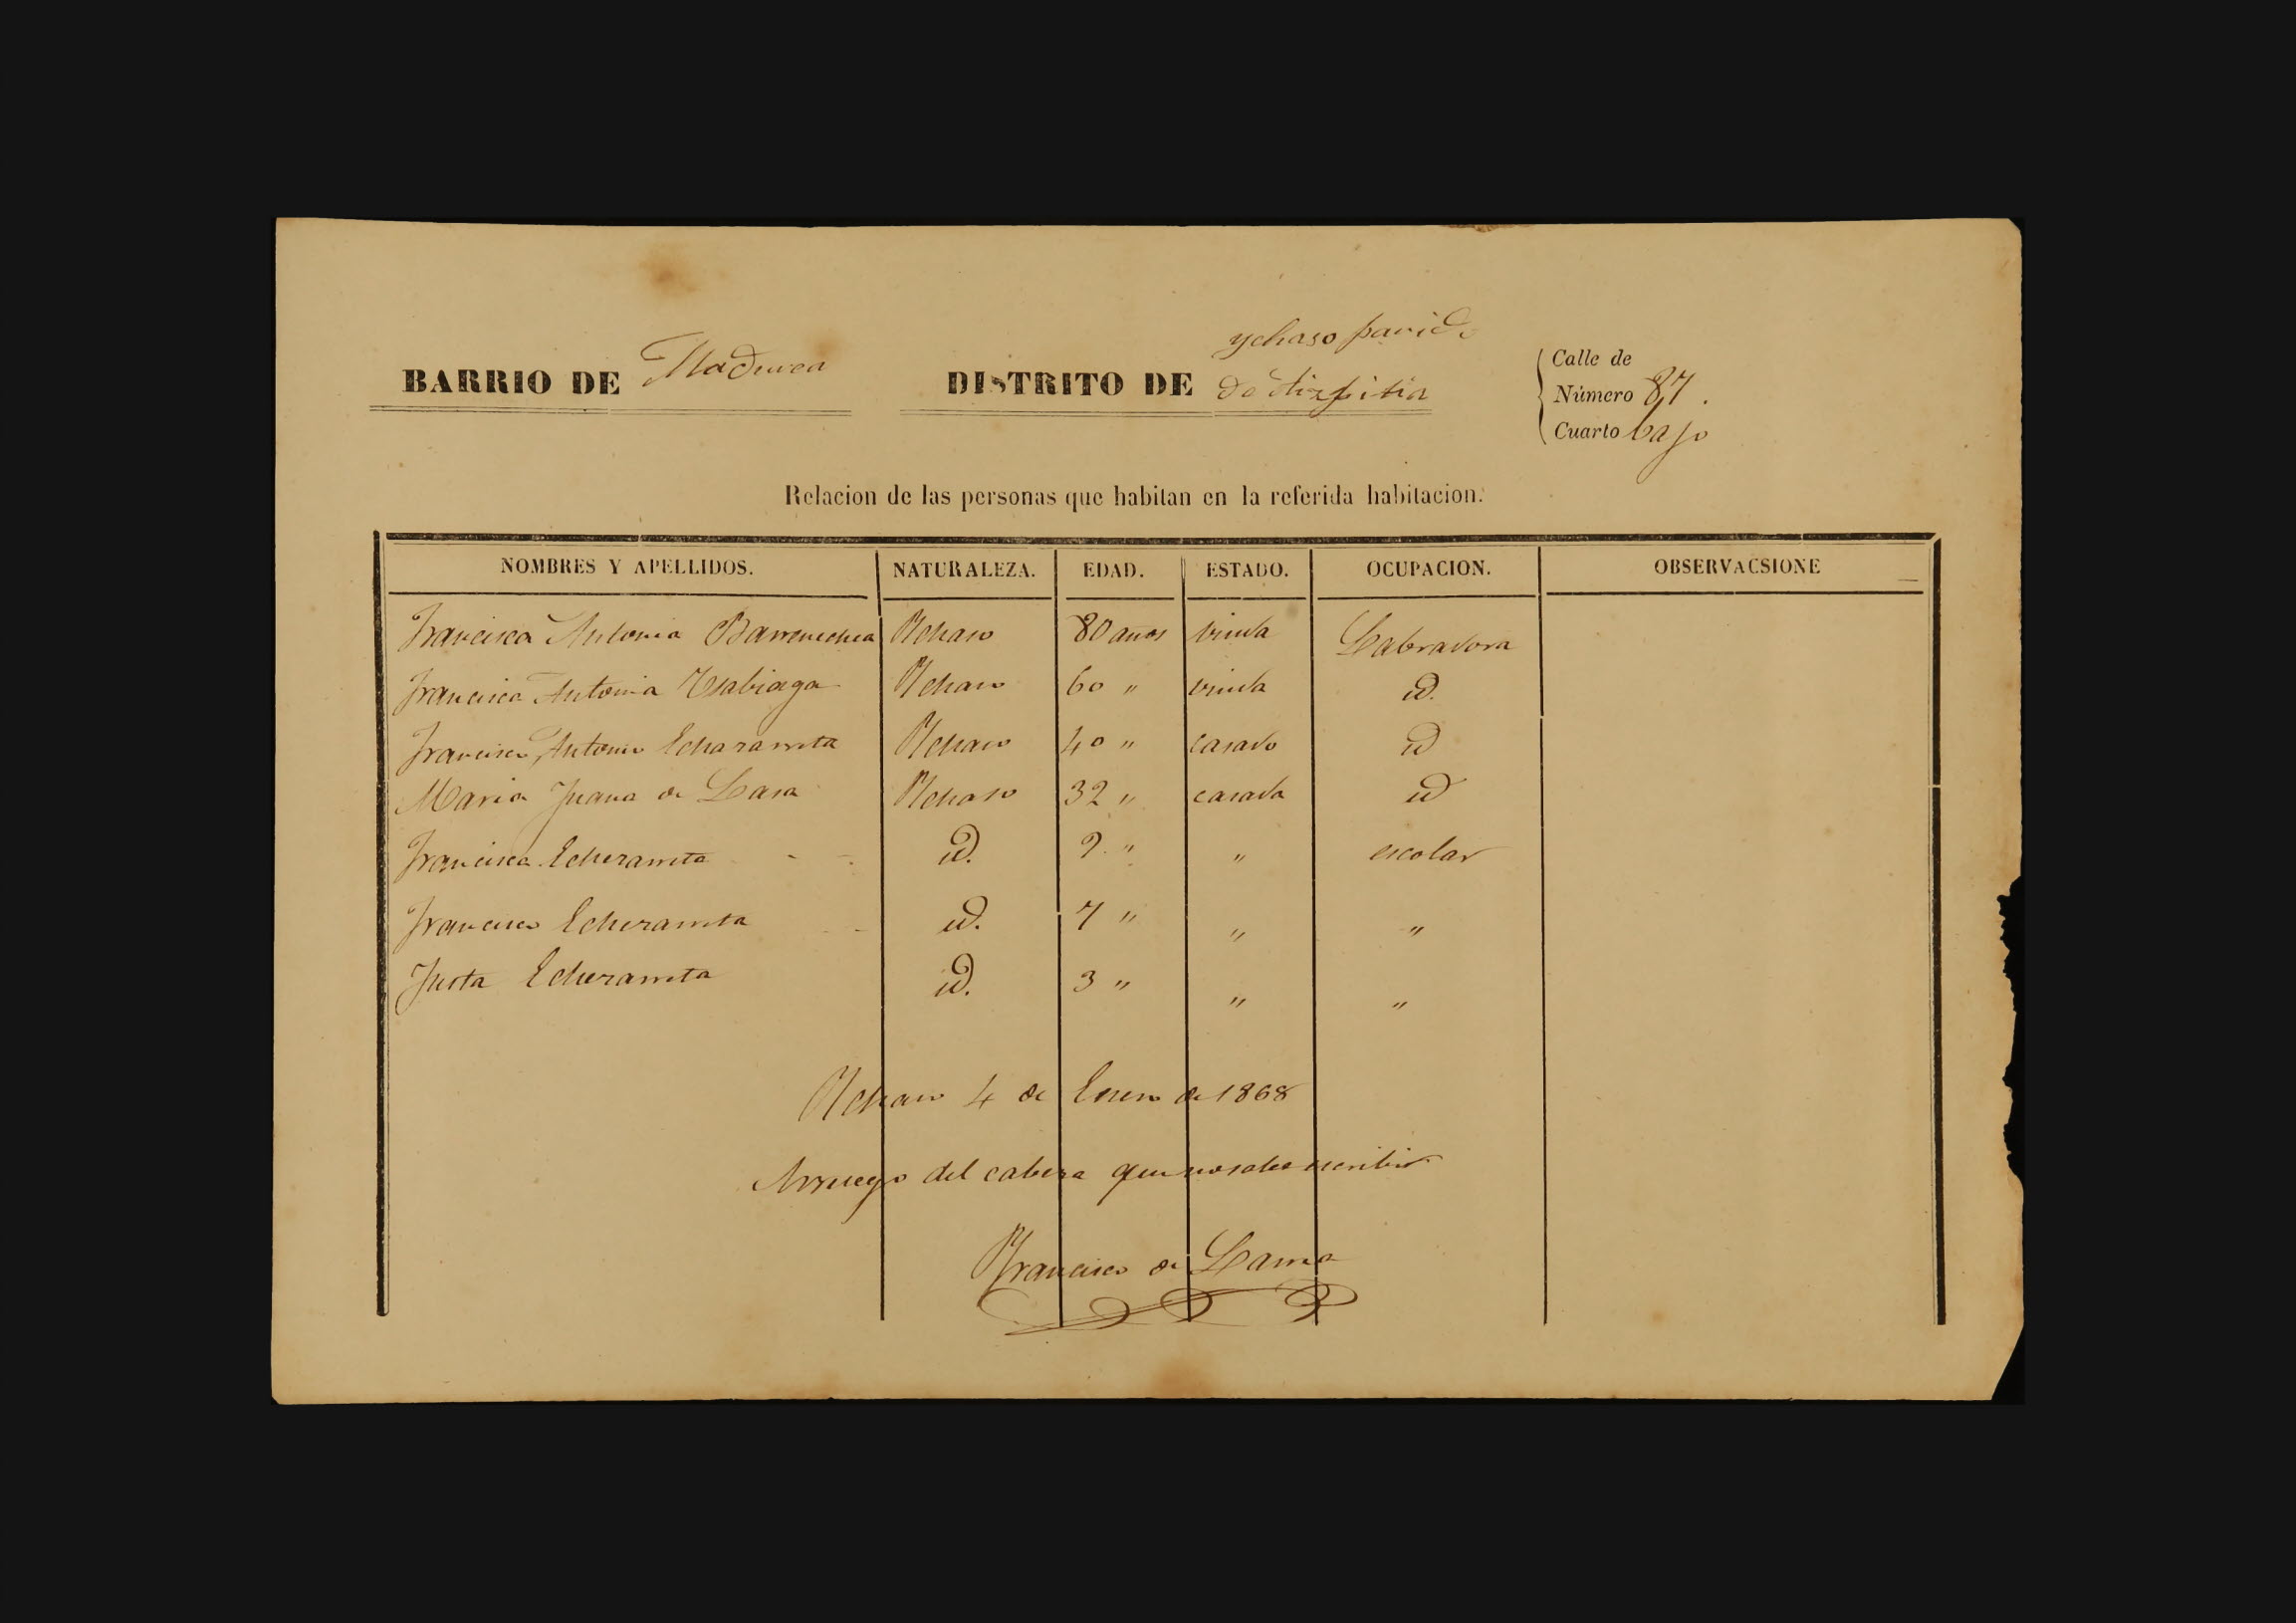 ychaso partido
BARRIO DE Maduvea DISTRITO DE de Aizpitia
Calle de
Número 87.
Cuarto bajo
Relacion de las personas que habitan en la referida habitacion.
NOMBRES Y APELLIDOS. NATURALEZA. EDAD. ESTADO. OCUPACION. OBSERVACSIONE
Francisca Antonia Barrenechea Ychaso 80 años viuda Labradora
Francisca Antonia Ysabiaga Ychaso 60 " viuda id.
Francisco Antonio Echarameta Ychaso 40 " casado id
Maria Juana de Lasa Ychaso 32 " casada id
Francisca Echezarreta id. 9 " " escolar
Francisco Echezarreta id. 7 " " "
Justa Echezarreta id. 3 " " "
Ychaso 4 de Enero de 1868
Arruego del cabeza que no sabe escribir
Francisco de